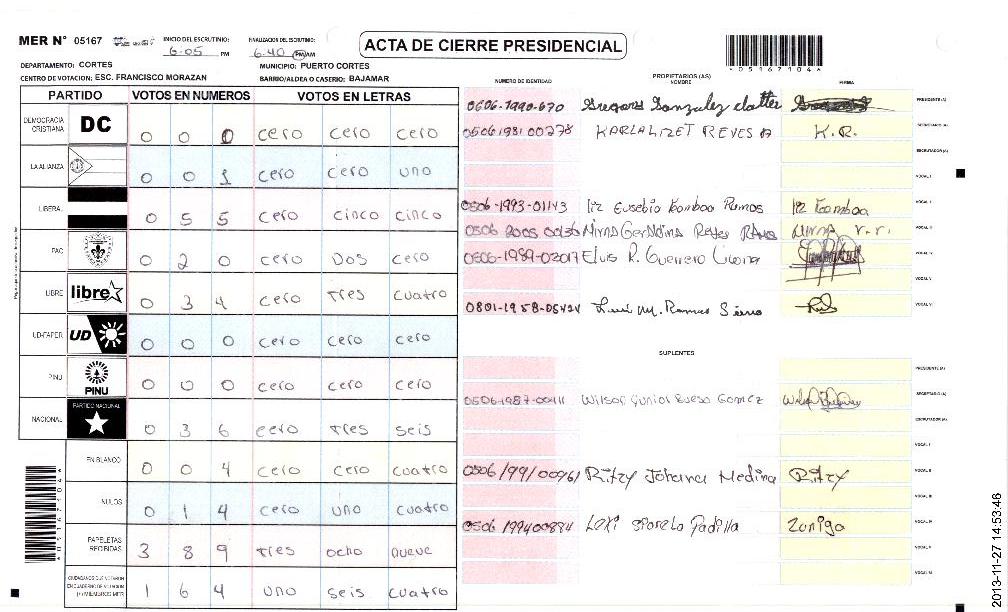 MER N° 05167
INICIO DEL ESCRUTINIO: 6-05 PM
FINALIZACION DEL ESCRUTINIO: 6-40 PM AM
ACTA DE CIERRE PRESIDENCIAL
*05167104*
DEPARTAMENTO: CORTES
MUNICIPIO: PUERTO CORTES
CENTRO DE VOTACION: ESC. FRANCISCO MORAZAN
BARRIO/ALDEA O CASERIO: BAJAMAR
PARTIDO VOTOS EN NUMEROS VOTOS EN LETRAS
DEMOCRACIA CRISTIANA DC 0 0 0 cero cero cero
LA ALIANZA 0 0 1 cero cero uno
LIBERAL 0 5 5 cero cinco cinco
PAC 0 2 0 cero Dos cero
LIBRE libre 0 3 4 cero tres cuatro
UD-FAPER UD 0 0 0 cero cero cero
PINU PINU 0 0 0 cero cero cero
NACIONAL PARTIDO NACIONAL 0 3 6 cero tres seis
EN BLANCO 0 0 4 cero cero cuatro
NULOS 0 1 4 cero uno cuatro
PAPELETAS RECIBIDAS 3 8 9 tres ocho nueve
CIUDADANOS QUE VOTARON EN CUADERNO DE VOTACION (+) MIEMBROS MER 1 6 4 uno seis cuatro
*05167104*
PROPIETARIOS (AS)
NUMERO DE IDENTIDAD NOMBRE FIRMA
0506-1990-670 Gonzalez PRESIDENTE (A)
0506 1981 00278 KARLA LIZET REYES K.R. SECRETARIO (A)
ESCRUTADOR (A)
VOCAL I
0506-1993-01143 Eusebio Ramos VOCAL II
0506 2005 Reyes
0506-1989-02017 Elvis R. Guerrero VOCAL IV
VOCAL V
0801-1958-05424 M. Ramos VOCAL VI
SUPLENTES
PRESIDENTE (A)
0506-1987-00111 Wilson Junior Bueso Gomez SECRETARIO (A)
ESCRUTADOR (A)
VOCAL I
0506/991/00961 Ritzy Johana Medina Ritzy VOCAL II
VOCAL III
0506 199400834 Padilla Zuniga VOCAL IV
VOCAL V
VOCAL VI
2013-11-27 14:53:46